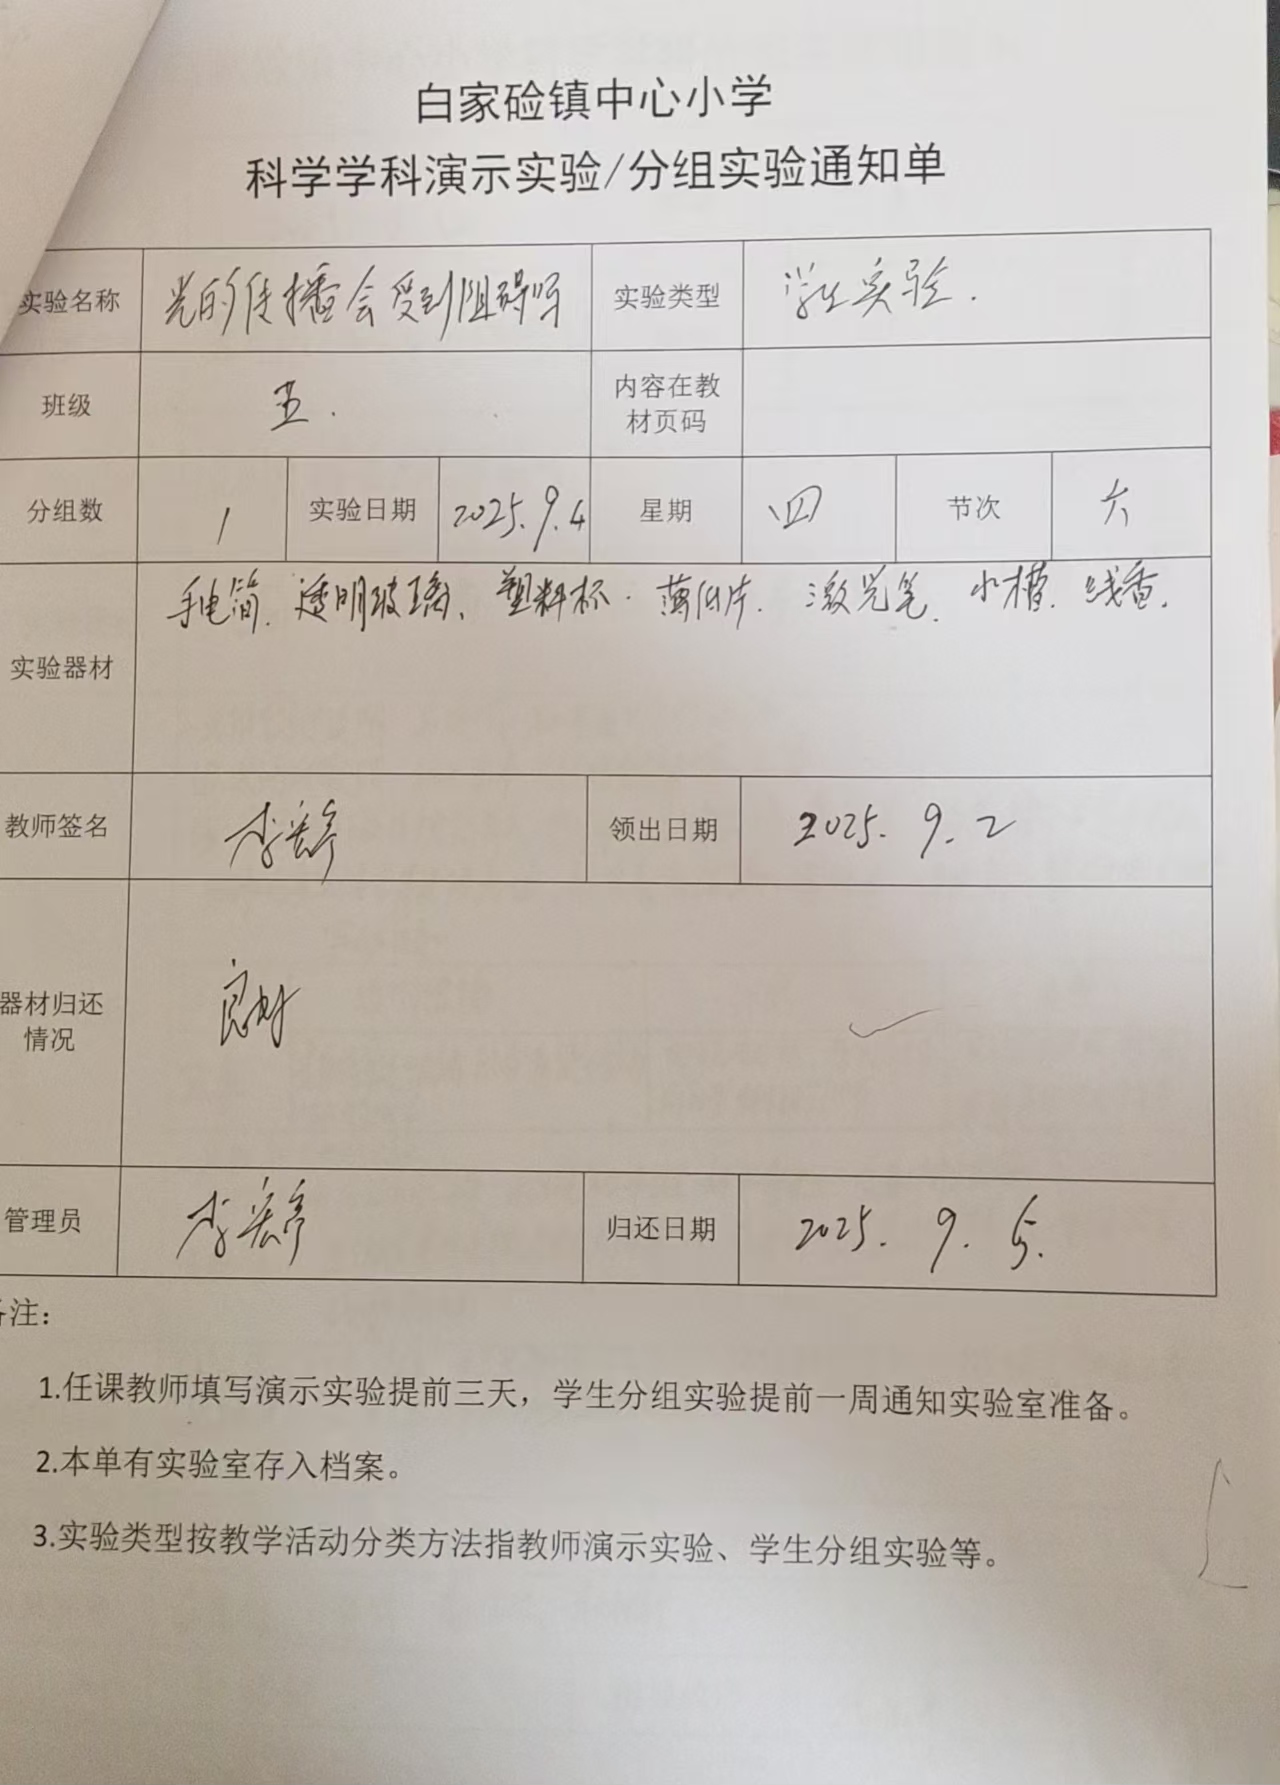 白家硷镇中心小学
科学学科演示实验/分组实验通知单
实验名称 光的传播会受到阻碍吗 实验类型 学生实验.
班级 五. 内容在教材页码
分组数 1 实验日期 2025.9.4 星期 四 节次 六
实验器材 手电筒、透明玻璃、塑料杯、薄纸片、激光笔、水槽、线香.
教师签名 李 领出日期 2025.9.2
器材归还情况 良好
管理员 李 归还日期 2025.9.5.
备注：
1.任课教师填写演示实验提前三天，学生分组实验提前一周通知实验室准备。
2.本单有实验室存入档案。
3.实验类型按教学活动分类方法指教师演示实验、学生分组实验等。